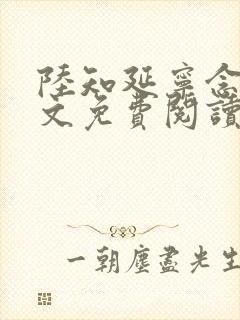 陸知延寧念
文免費閱讀
一朝塵盡光生